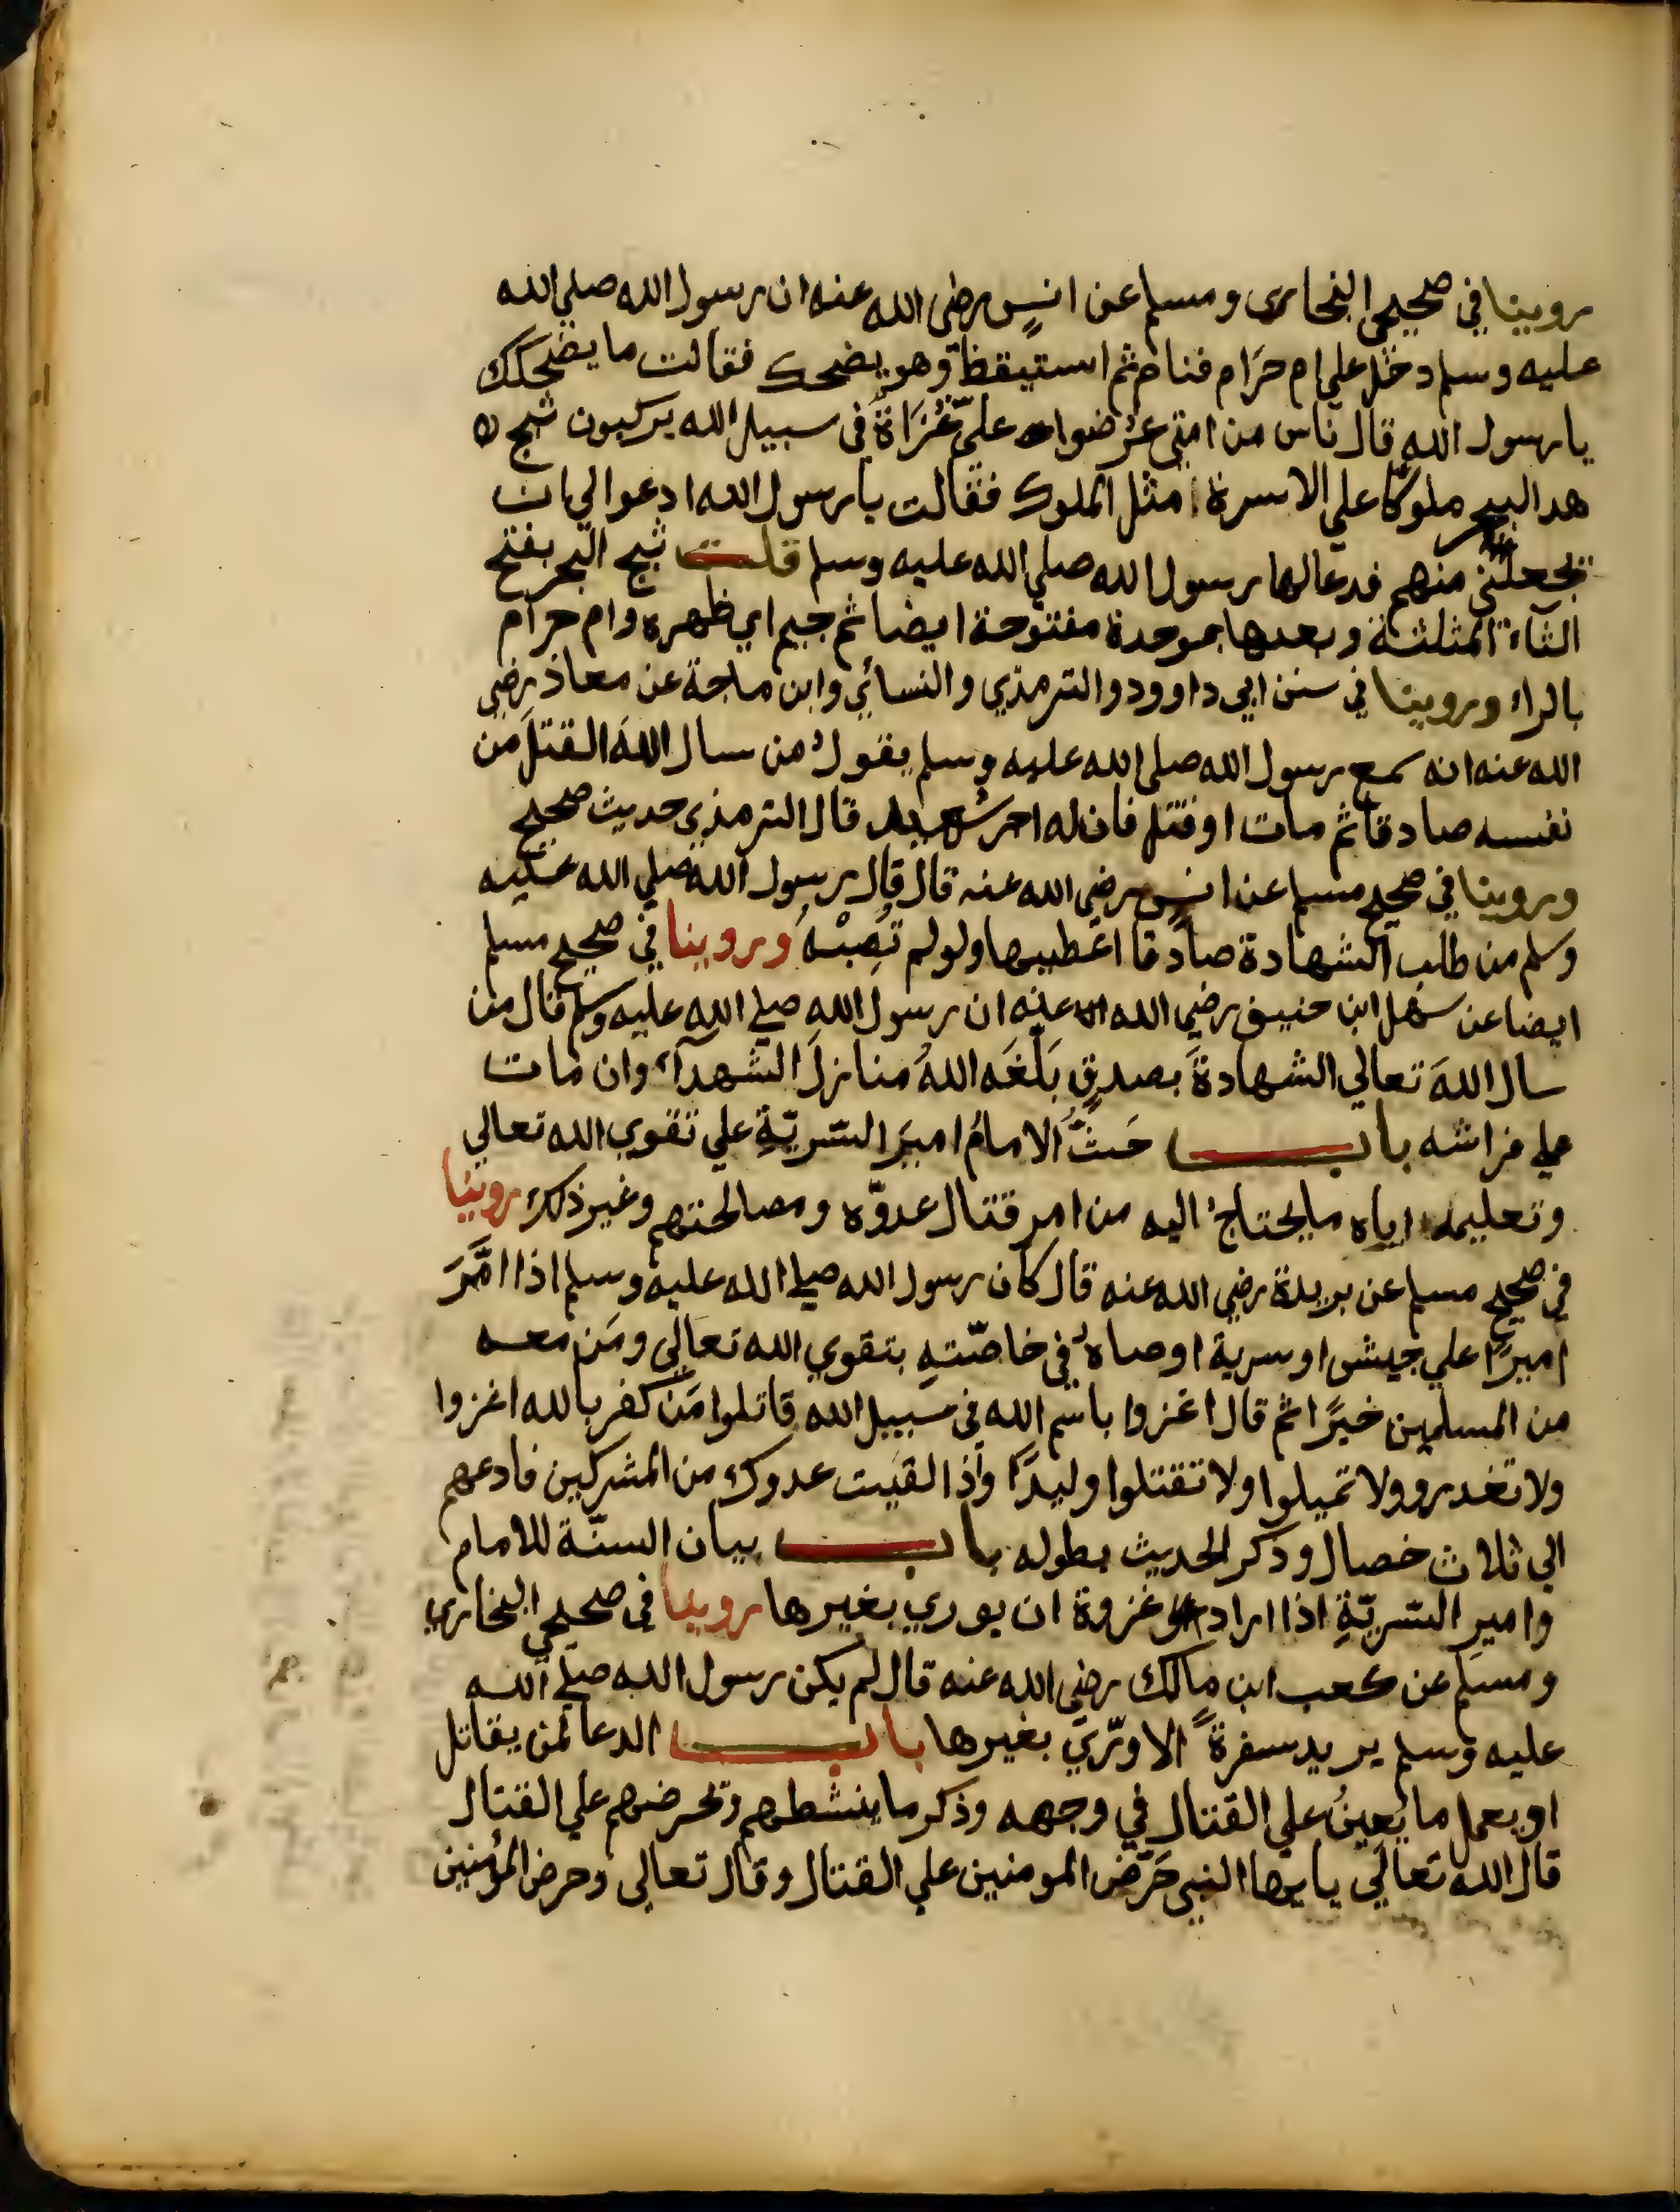 روينا في صحيحي البخاري ومسلم عن انسٍ رضي الله عنه ان رسول الله صلي الله
عليه وسلم دخل علي ام حَرَام فنام ثم استيقظ وهو يضحك فقالت ما يضحكك
يا رسول الله قال ناس من امتي عُرضوا عليّ غُزَاةً في سبيل الله يركبون ثبج
هدا البحر ملوكًا علي الاسرة او مثل الملوك فقالت يا رسول الله ادعوا لي ان
يجعلني منهم فدعا لها رسول الله صلي الله عليه وسلم قلت ثبج البحر بفتح
الثآء المثلثة وبعدها بموحدة مفتوحة ايضا ثم جيم اي ظهره وام حرام
بالراء وروينا في سنن ابي داوود والترمذي والنسائي وابن ماجة عن معاذ رضي
الله عنه انه سمع رسول الله صلي الله عليه وسلم يقولُ من سال اللهَ القتلَ من
نفسه صادقا ثم مات او قتل فان له اجر شهيد قال الترمذي حديث صحيح
وروينا في صحيح مسلم عن انسٍ رضي الله عنه قال قال رسول الله صلي الله عليه
وسلم من طلب الشهادة صادقا اعطيها ولو لم تُصِبْهُ وروينا في صحيح مسلم
ايضا عن سهل ابن حنيف رضي الله عنه ان رسول الله صلي الله عليه وسلم قال من
سال اللهَ تعالي الشهادةَ بصدقٍ بَلّغَه اللهُ منازلَ الشهدآء وان مات
علي فراشه باب حَثُّ الامامُ اميرَ السّريّةِ علي تقوي الله تعالي
وتعليمه اياه ما يحتاجُ اليه من امر قتال عدوّه ومصالحتهم وغير ذلك روينا
في صحيح مسلم عن بريدة رضي الله عنه قال كان رسول الله صلي الله عليه وسلم اذا امَّرَ
اميرًا علي جيش او سرية اوصاه في خاصّتهِ بتقوي الله تعالي ومَن معه
من المسلمين خيرًا ثم قال اغزوا باسم الله في سبيل الله قاتلوا مَنْ كفر بالله اغزوا
ولا تغدرو ولا تميلوا ولا تقتلوا وليدًا واذا لقيت عدوك من المشركين فادعهم
الي ثلاث خصال وذكر الحديث بطوله باب بيان السنّة للامام
وامير السّريّةِ اذا اراد غزوة ان يوري بغيرها روينا في صحيحي البخاري
ومسلم عن كعب ابن مالكٍ رضي الله عنه قال لم يكن رسول الله صلي الله
عليه وسلم يريد سفرةً الا ورّي بغيرها باب الدعا لمن يقاتل
او يعمل ما يُعينُ علي القتال في وجهه وذكر ما ينشطهم وتحرضهم علي القتال
قال الله تعالي يا يها النبي حَرّض المومنين علي القتال وقال تعالي وحرض المؤمنين